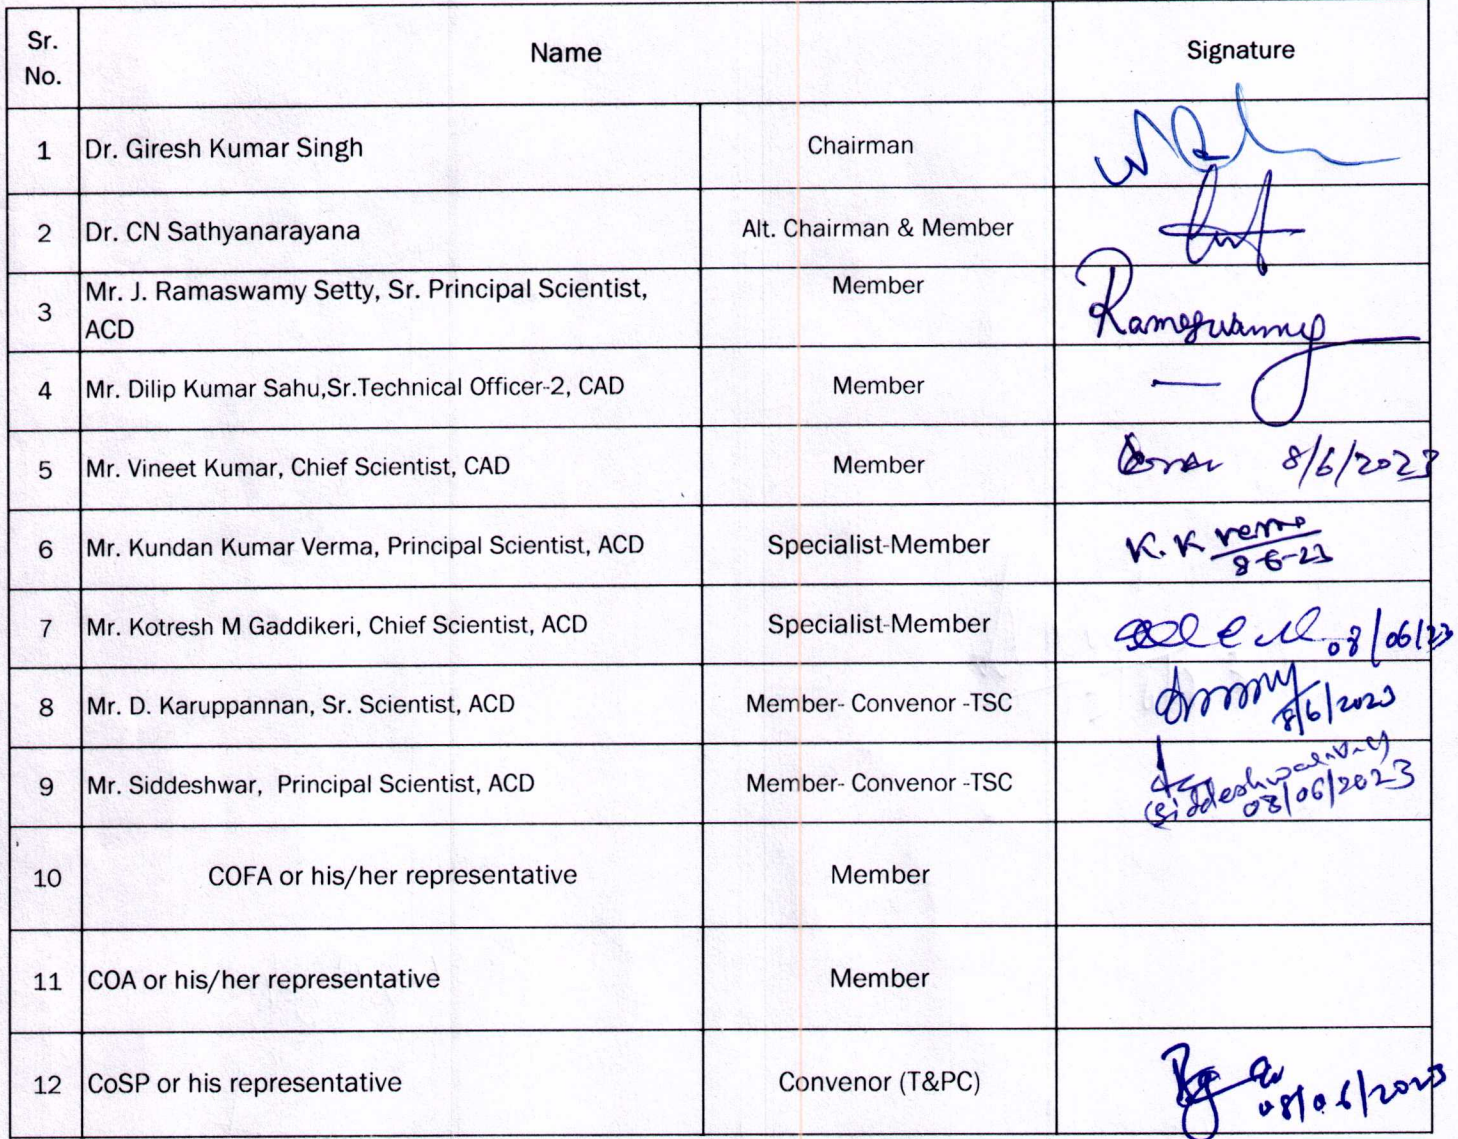 Sr. No. Name Signature
1 Dr. Giresh Kumar Singh Chairman
2 Dr. CN Sathyanarayana Alt. Chairman & Member
3 Mr. J. Ramaswamy Setty, Sr. Principal Scientist, Member
ACD Ramaswamy
4 Mr. Dilip Kumar Sahu,Sr.Technical Officer-2, CAD Member —
5 Mr. Vineet Kumar, Chief Scientist, CAD Member 8/6/2023
6 Mr. Kundan Kumar Verma, Principal Scientist, ACD Specialist-Member K. K Verma
8-6-23
7 Mr. Kotresh M Gaddikeri, Chief Scientist, ACD Specialist-Member 08/06/23
8 Mr. D. Karuppannan, Sr. Scientist, ACD Member- Convenor -TSC 8/6/2023
9 Mr. Siddeshwar, Principal Scientist, ACD Member- Convenor -TSC
08/06/2023
10 COFA or his/her representative Member
11 COA or his/her representative Member
12 CoSP or his representative Convenor (T&PC) 08/06/2023